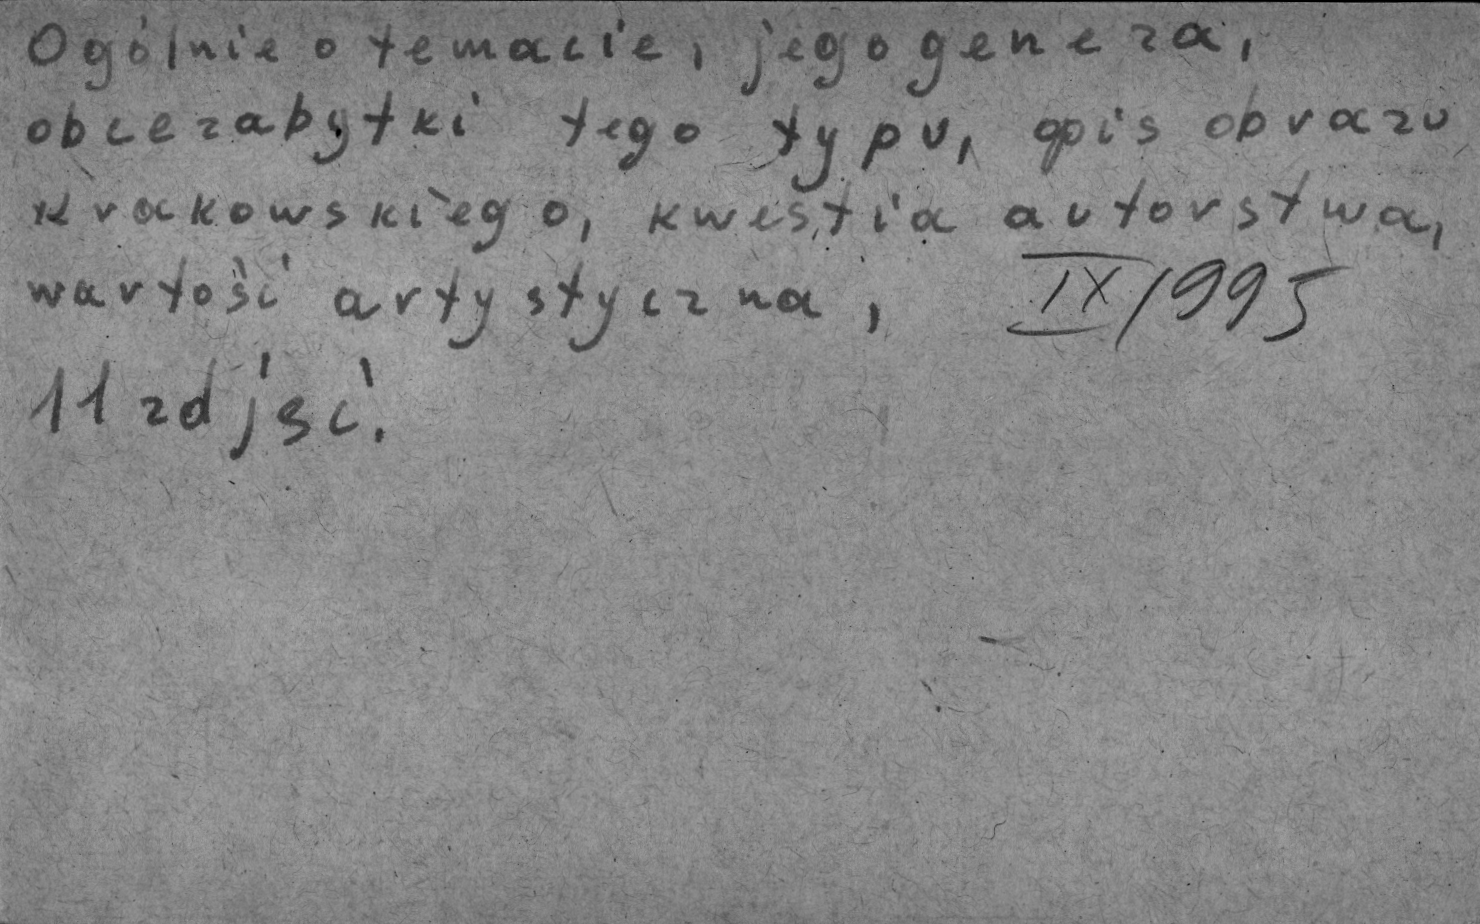 Ogólnie o temacie, jego geneza,
obce zabytki tego typu, opis obrazu
krakowskiego, kwestia autorstwa,
wartość artystyczna, IX/1995
11 zdjęć.